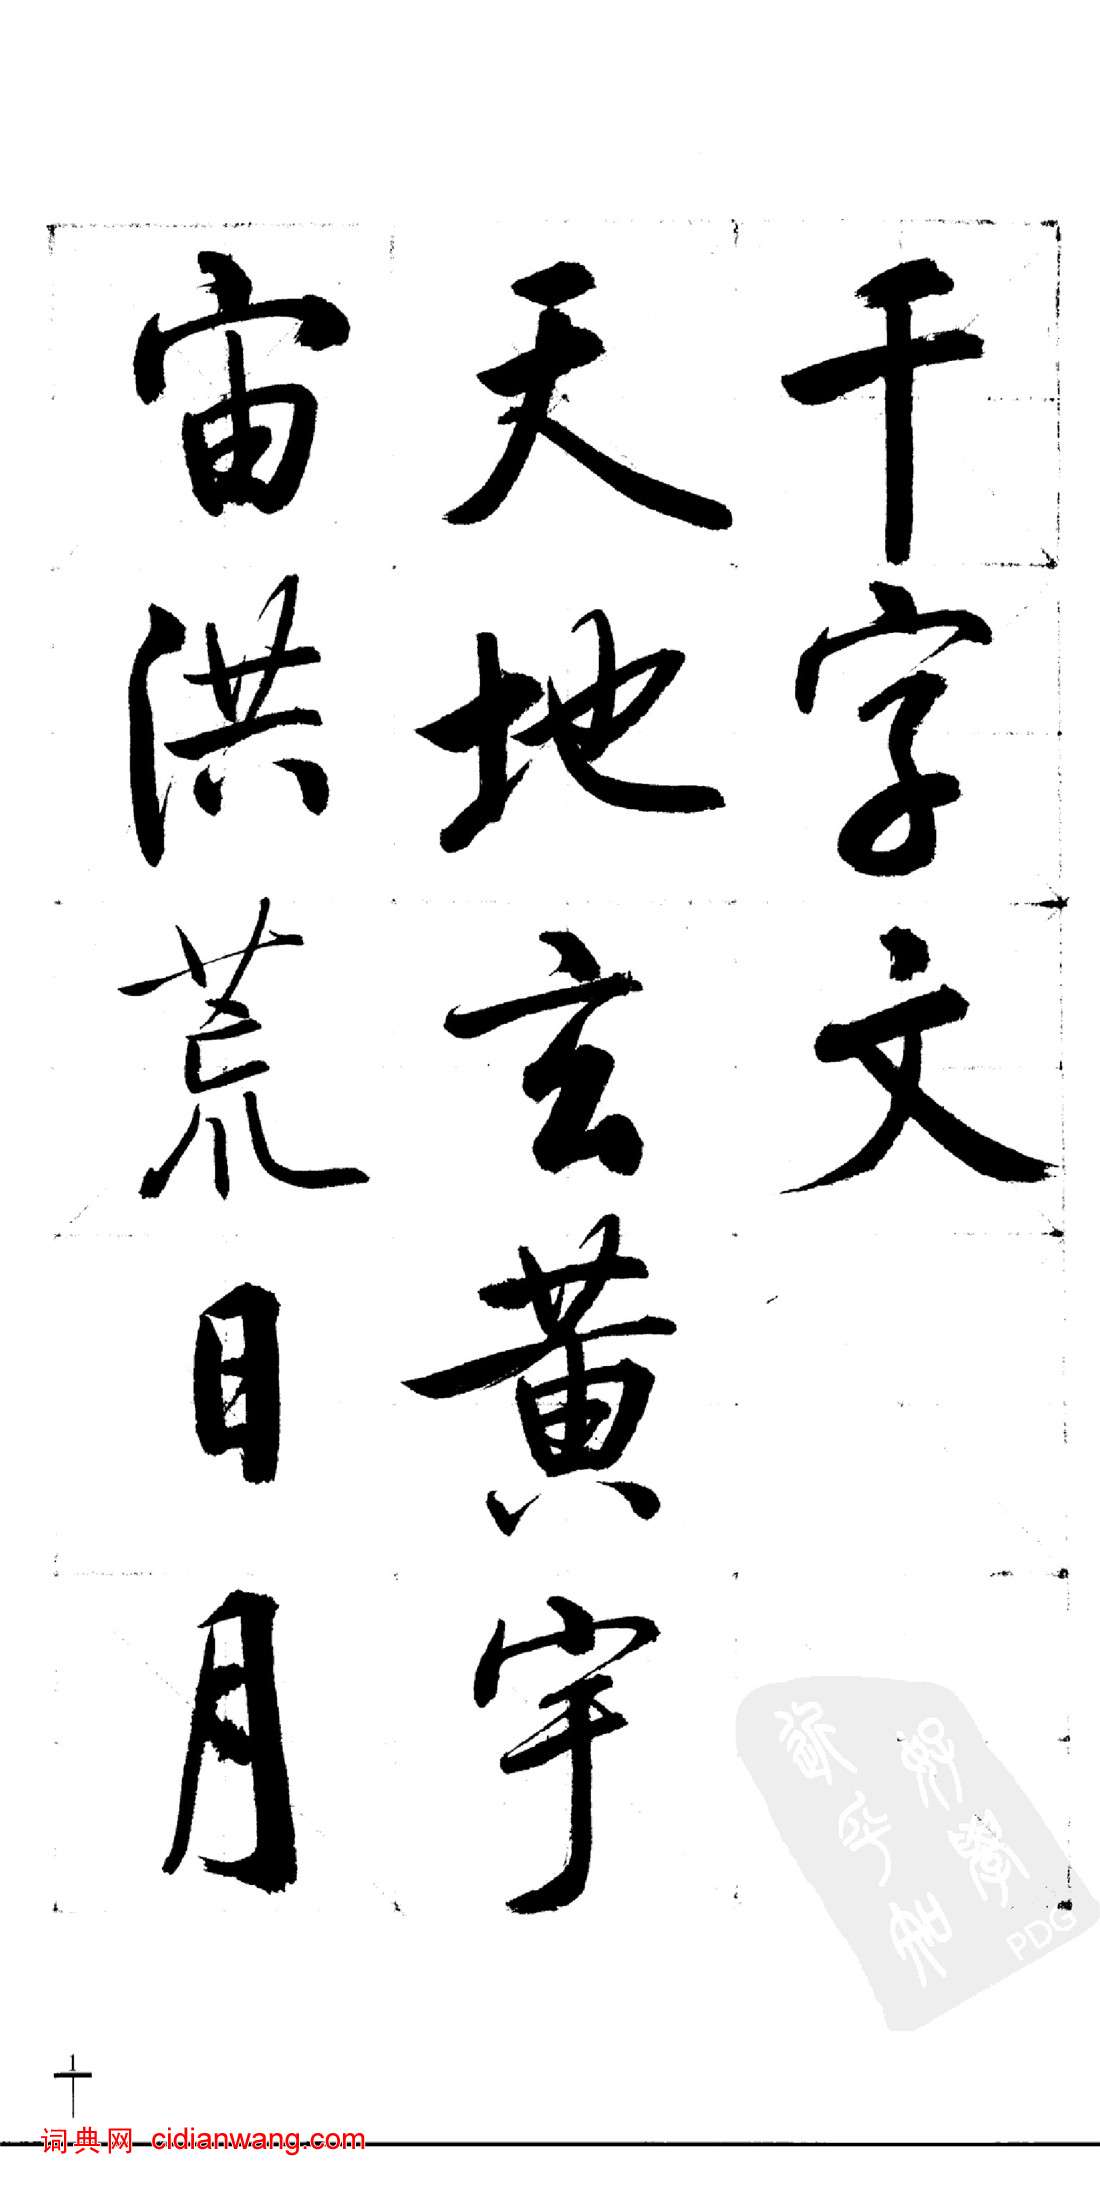 千字文
天地玄黄宇
宙洪荒日月
PDG
1
词典网 cidianwang.com